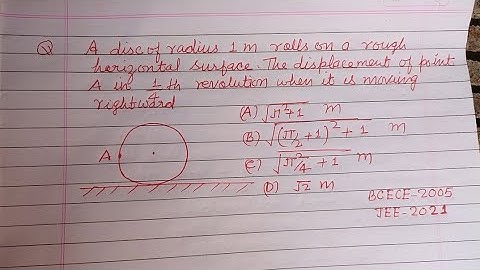 Q A disc of radius 1 m rolls on a rough
horizontal surface. The displacement of point
A in 1/4 th revolution when it is moving
rightward
(A) √π²+1 m
(B) √(π/2+1)²+1 m
(C) √π²/4+1 m
(D) √2 m
A
BCECE-2005
JEE-2021